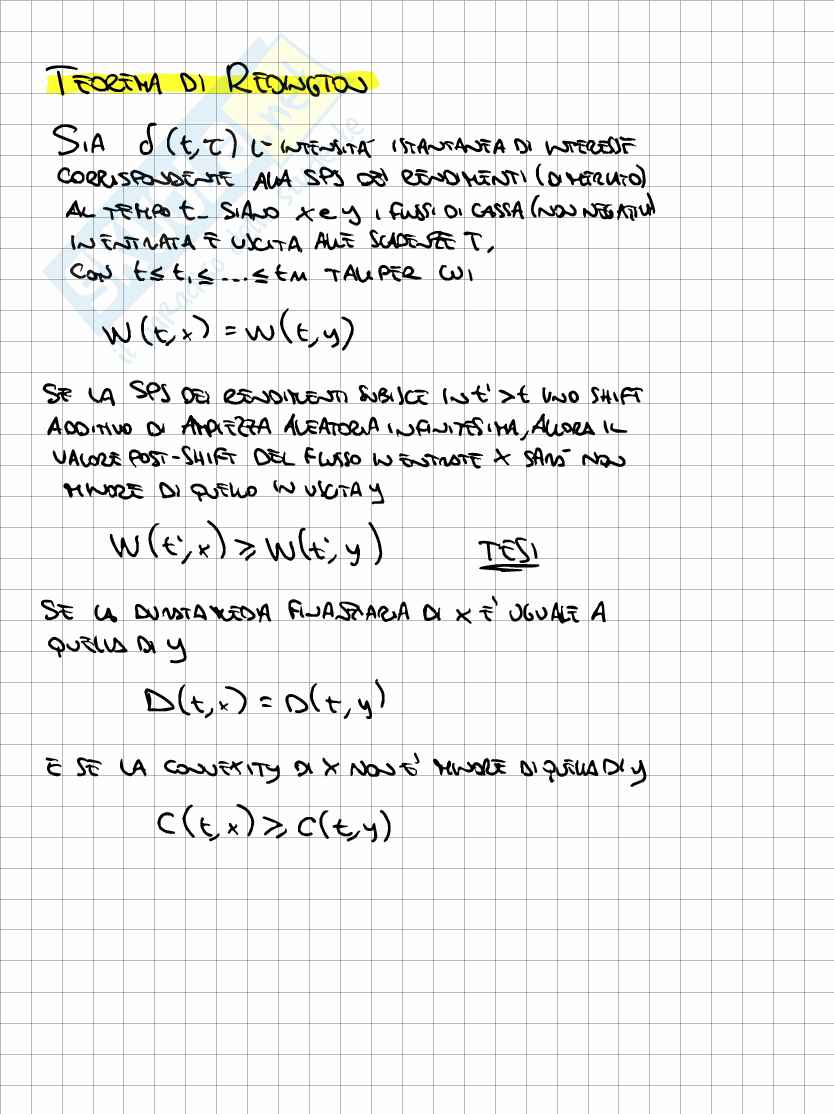 TEOREMA DI REDINGTON
SIA δ(t,τ) L'INTENSITÀ ISTANTANEA DI INTERESSE
CORRISPONDENTE ALLA SPS DEI RENDIMENTI (DI MERCATO)
AL TEMPO t. SIANO x e y I FLUSSI DI CASSA (NON NEGATIVI)
IN ENTRATA E USCITA ALLE SCADENZE T,
CON t ≤ t₁ ≤ ... ≤ tm TALI PER CUI
W(t,x) = W(t,y)
SE LA SPS DEI RENDIMENTI SUBISCE IN t' > t UNO SHIFT
ADDITIVO DI AMPIEZZA ALEATORIA INFINITESIMA, ALLORA IL
VALORE POST-SHIFT DEL FLUSSO IN ENTRATE X SARÀ NON
MINORE DI QUELLO IN USCITA y
W(t',x) ⩾ W(t',y) TESI
SE LA DURATA MEDIA FINANZIARIA DI X E' UGUALE A
QUELLA DI y
D(t,x) = D(t,y)
E SE LA CONVEXITY DI X NON E' MINORE DI QUELLA DI y
C(t,x) ⩾ C(t,y)